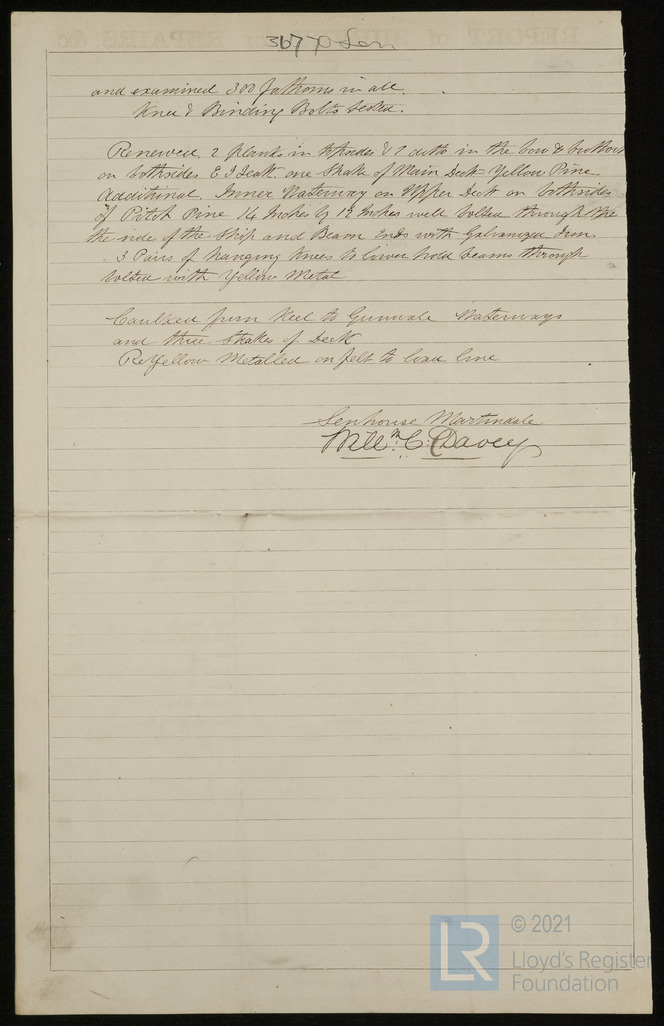 REPORT of SURVEY for REPAIRS, &c.
367
and examined 300 fathoms in all.
Knee & Binding Bolts tested.
Renewed. 2 planks in topsides & 7 ditto in the bow & buttock
on bothsides E I Teak. one Strake of Main Deck = Yellow Pine.
Additional. Inner Waterway on Upper Deck on bothsides
of Pitch Pine 14 Inches by 12 Inches well bolted through the
the side of the Ship and Beam Ends with Galvanized Iron.
3 Pairs of hanging Knees to lower hold beams through
bolted with Yellow Metal
Caulked from Keel to Gunwale Waterways
and three Strakes of Deck
ReYellow Metalled on felt to load line
Senhouse Martindale
Willm. C. Davey
LR
© 2021
Lloyd's Register
Foundation